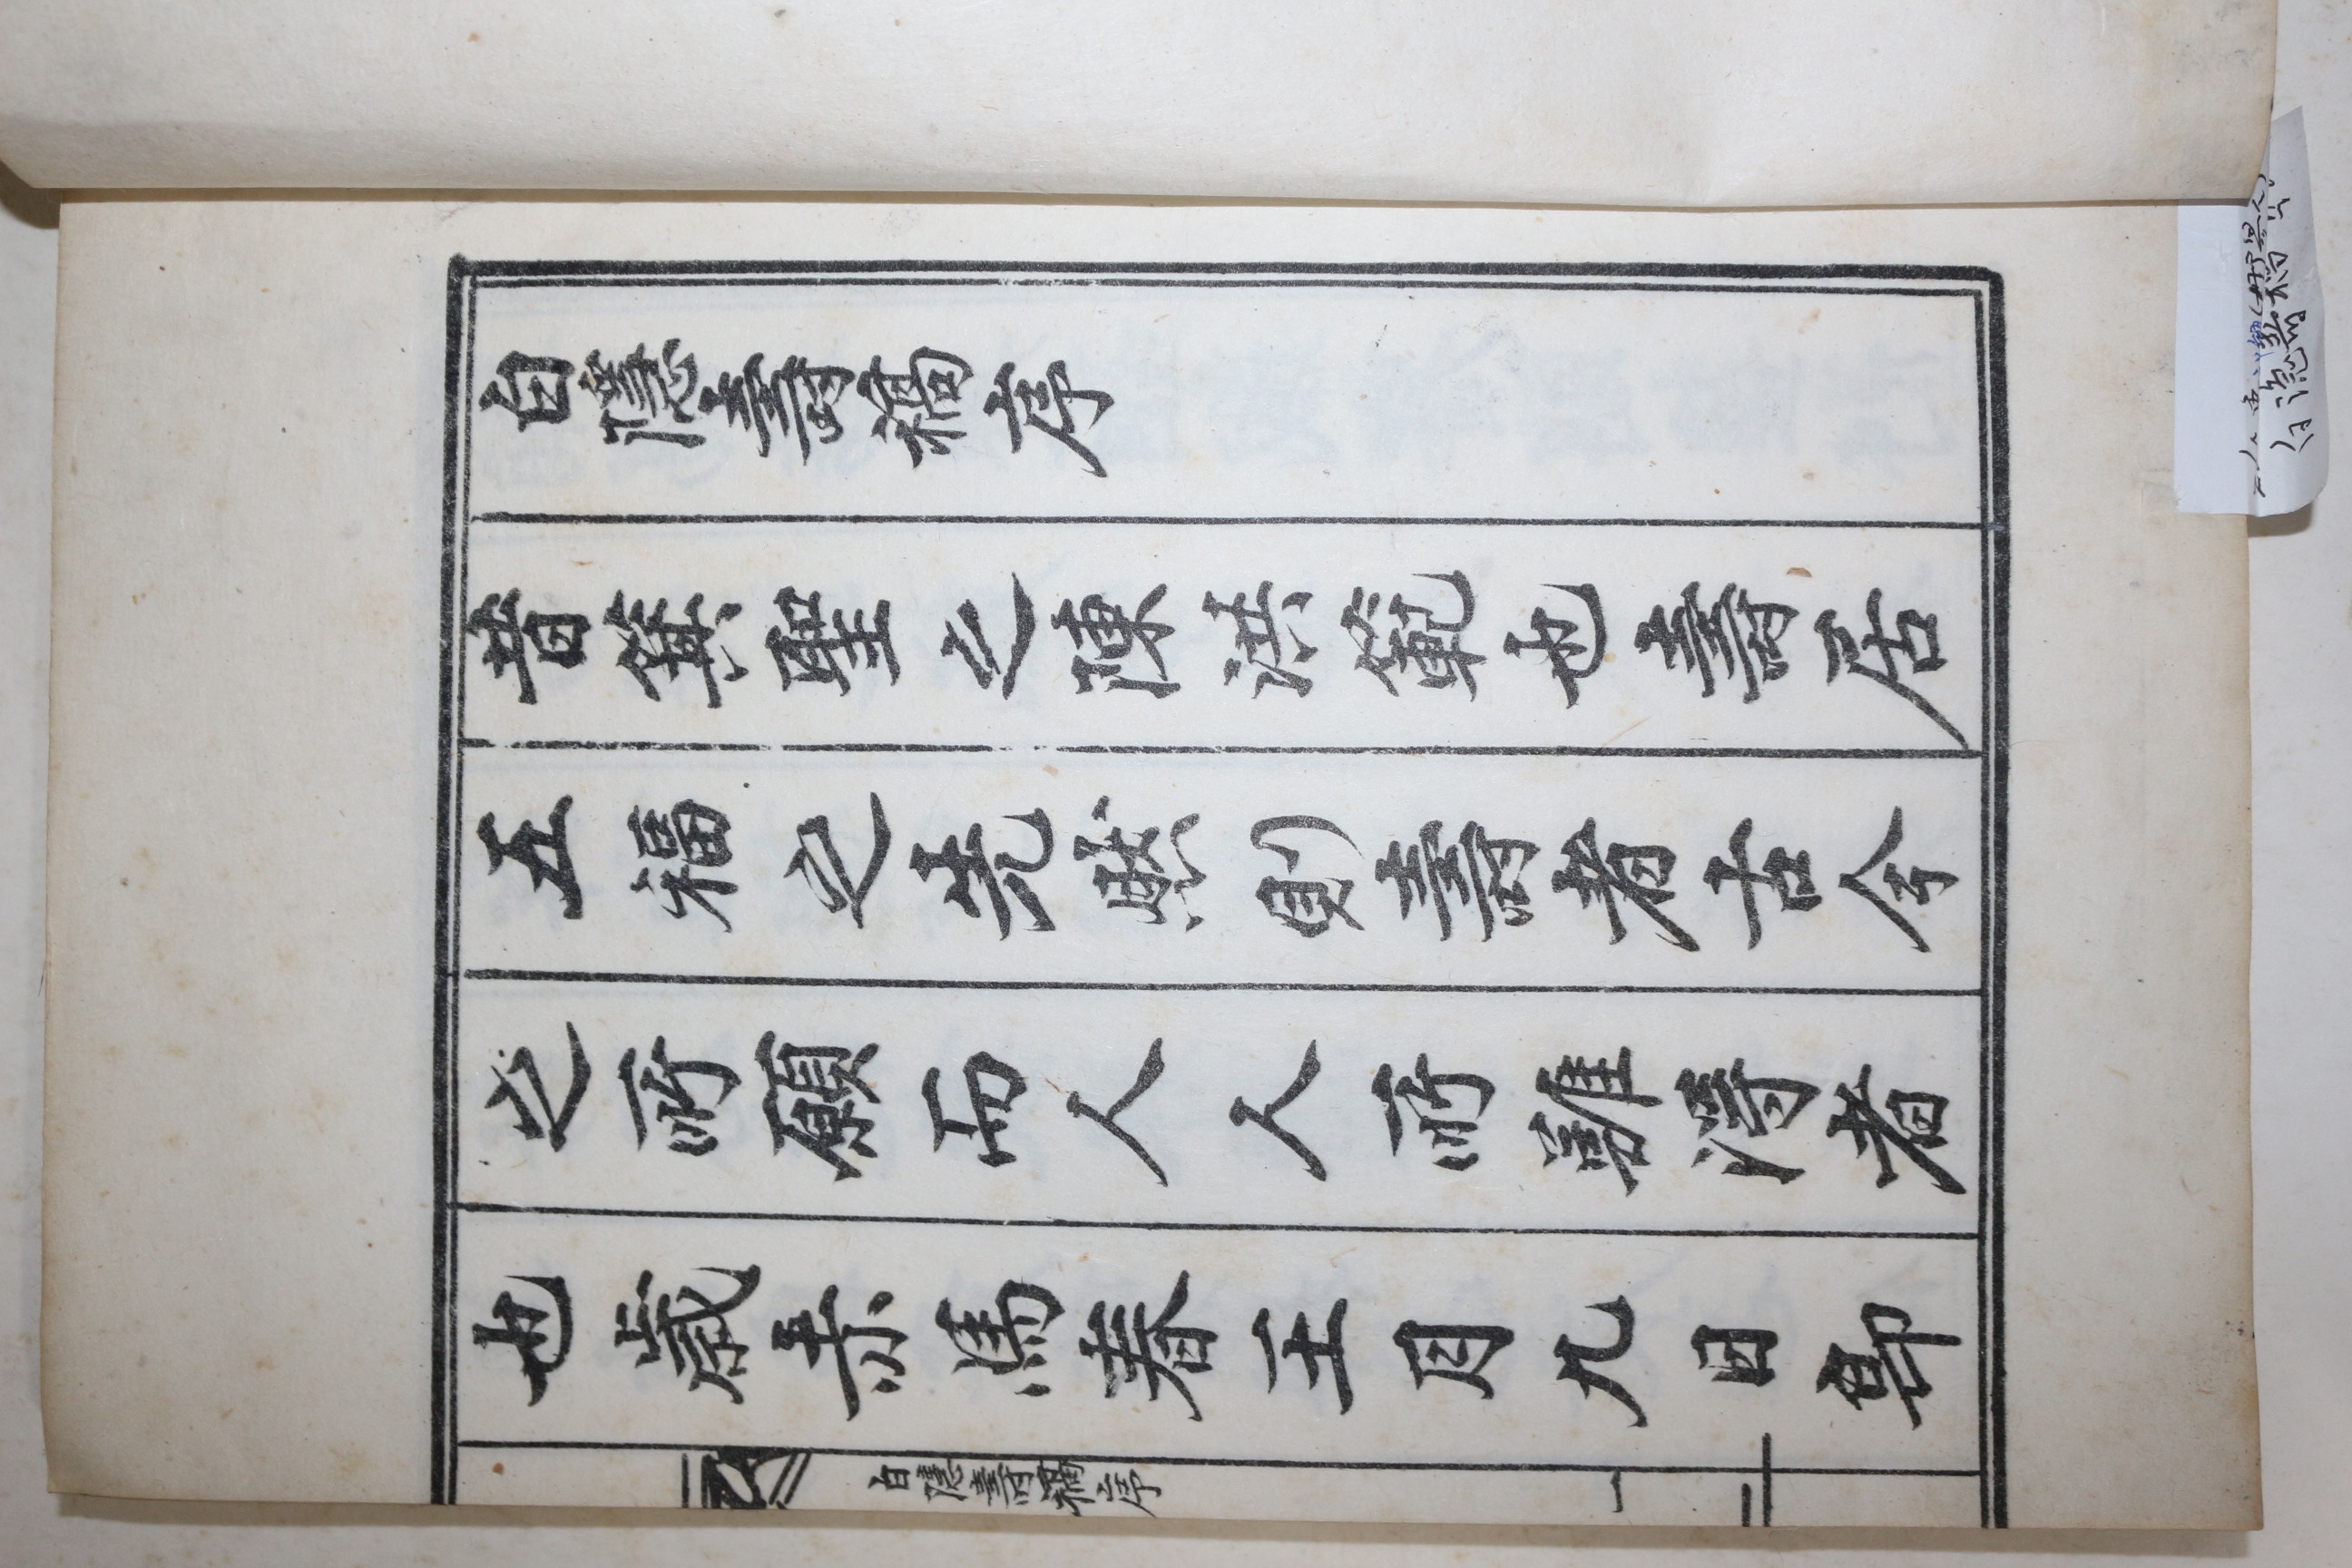 白隱壽稿序
昔箕聖之陳洪範也壽居
五福之先然則壽者古今
之所願而人人所難得者
也歲赤馬春王月九日卽
白隱壽稿序 一